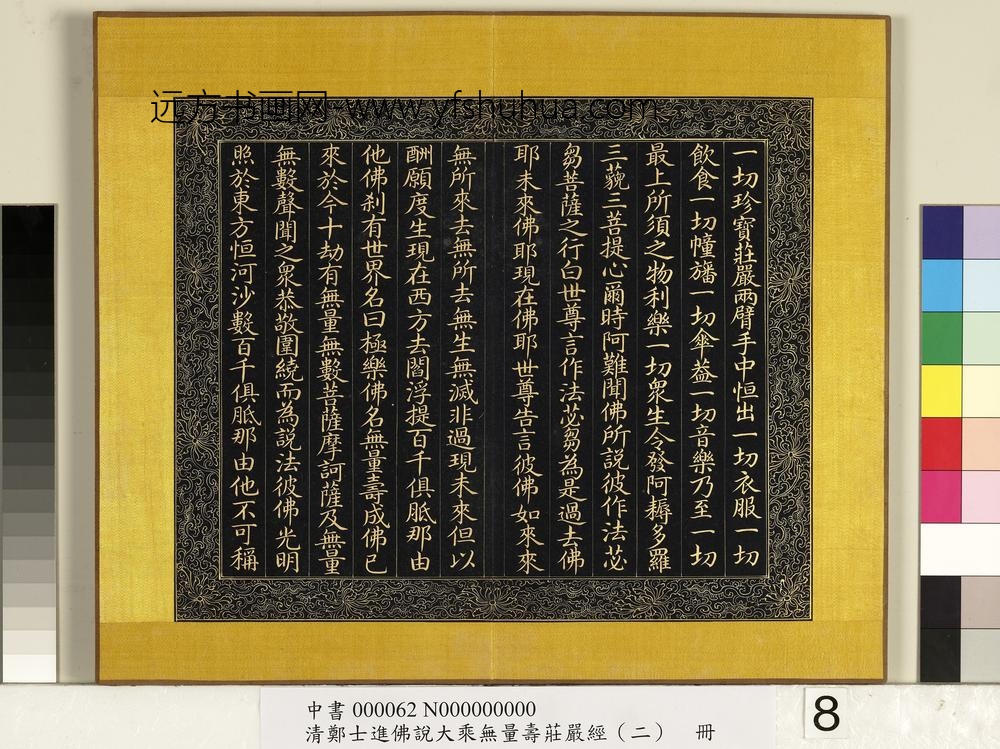 远方书画网-www.yfshuhua.com
一切珍寶莊嚴兩臂手中恒出一切衣服一切
飲食一切幢旛一切傘葢一切音樂乃至一切
最上所須之物利樂一切衆生令發阿耨多羅
三藐三菩提心爾時阿難聞佛所說彼作法苾
芻菩薩之行白世尊言作法苾芻為是過去佛
耶未來佛耶現在佛耶世尊告言彼佛如來來
無所來去無所去無生無滅非過現未來但以
酬願度生現在西方去閻浮提百千俱胝那由
他佛刹有世界名曰極樂佛名無量壽成佛已
來於今十劫有無量無數菩薩摩訶薩及無量
無數聲聞之衆恭敬圍繞而為說法彼佛光明
照於東方恒河沙數百千俱胝那由他不可稱
中書 000062 N000000000
清鄭士進佛說大乘無量壽莊嚴經（二） 冊
8